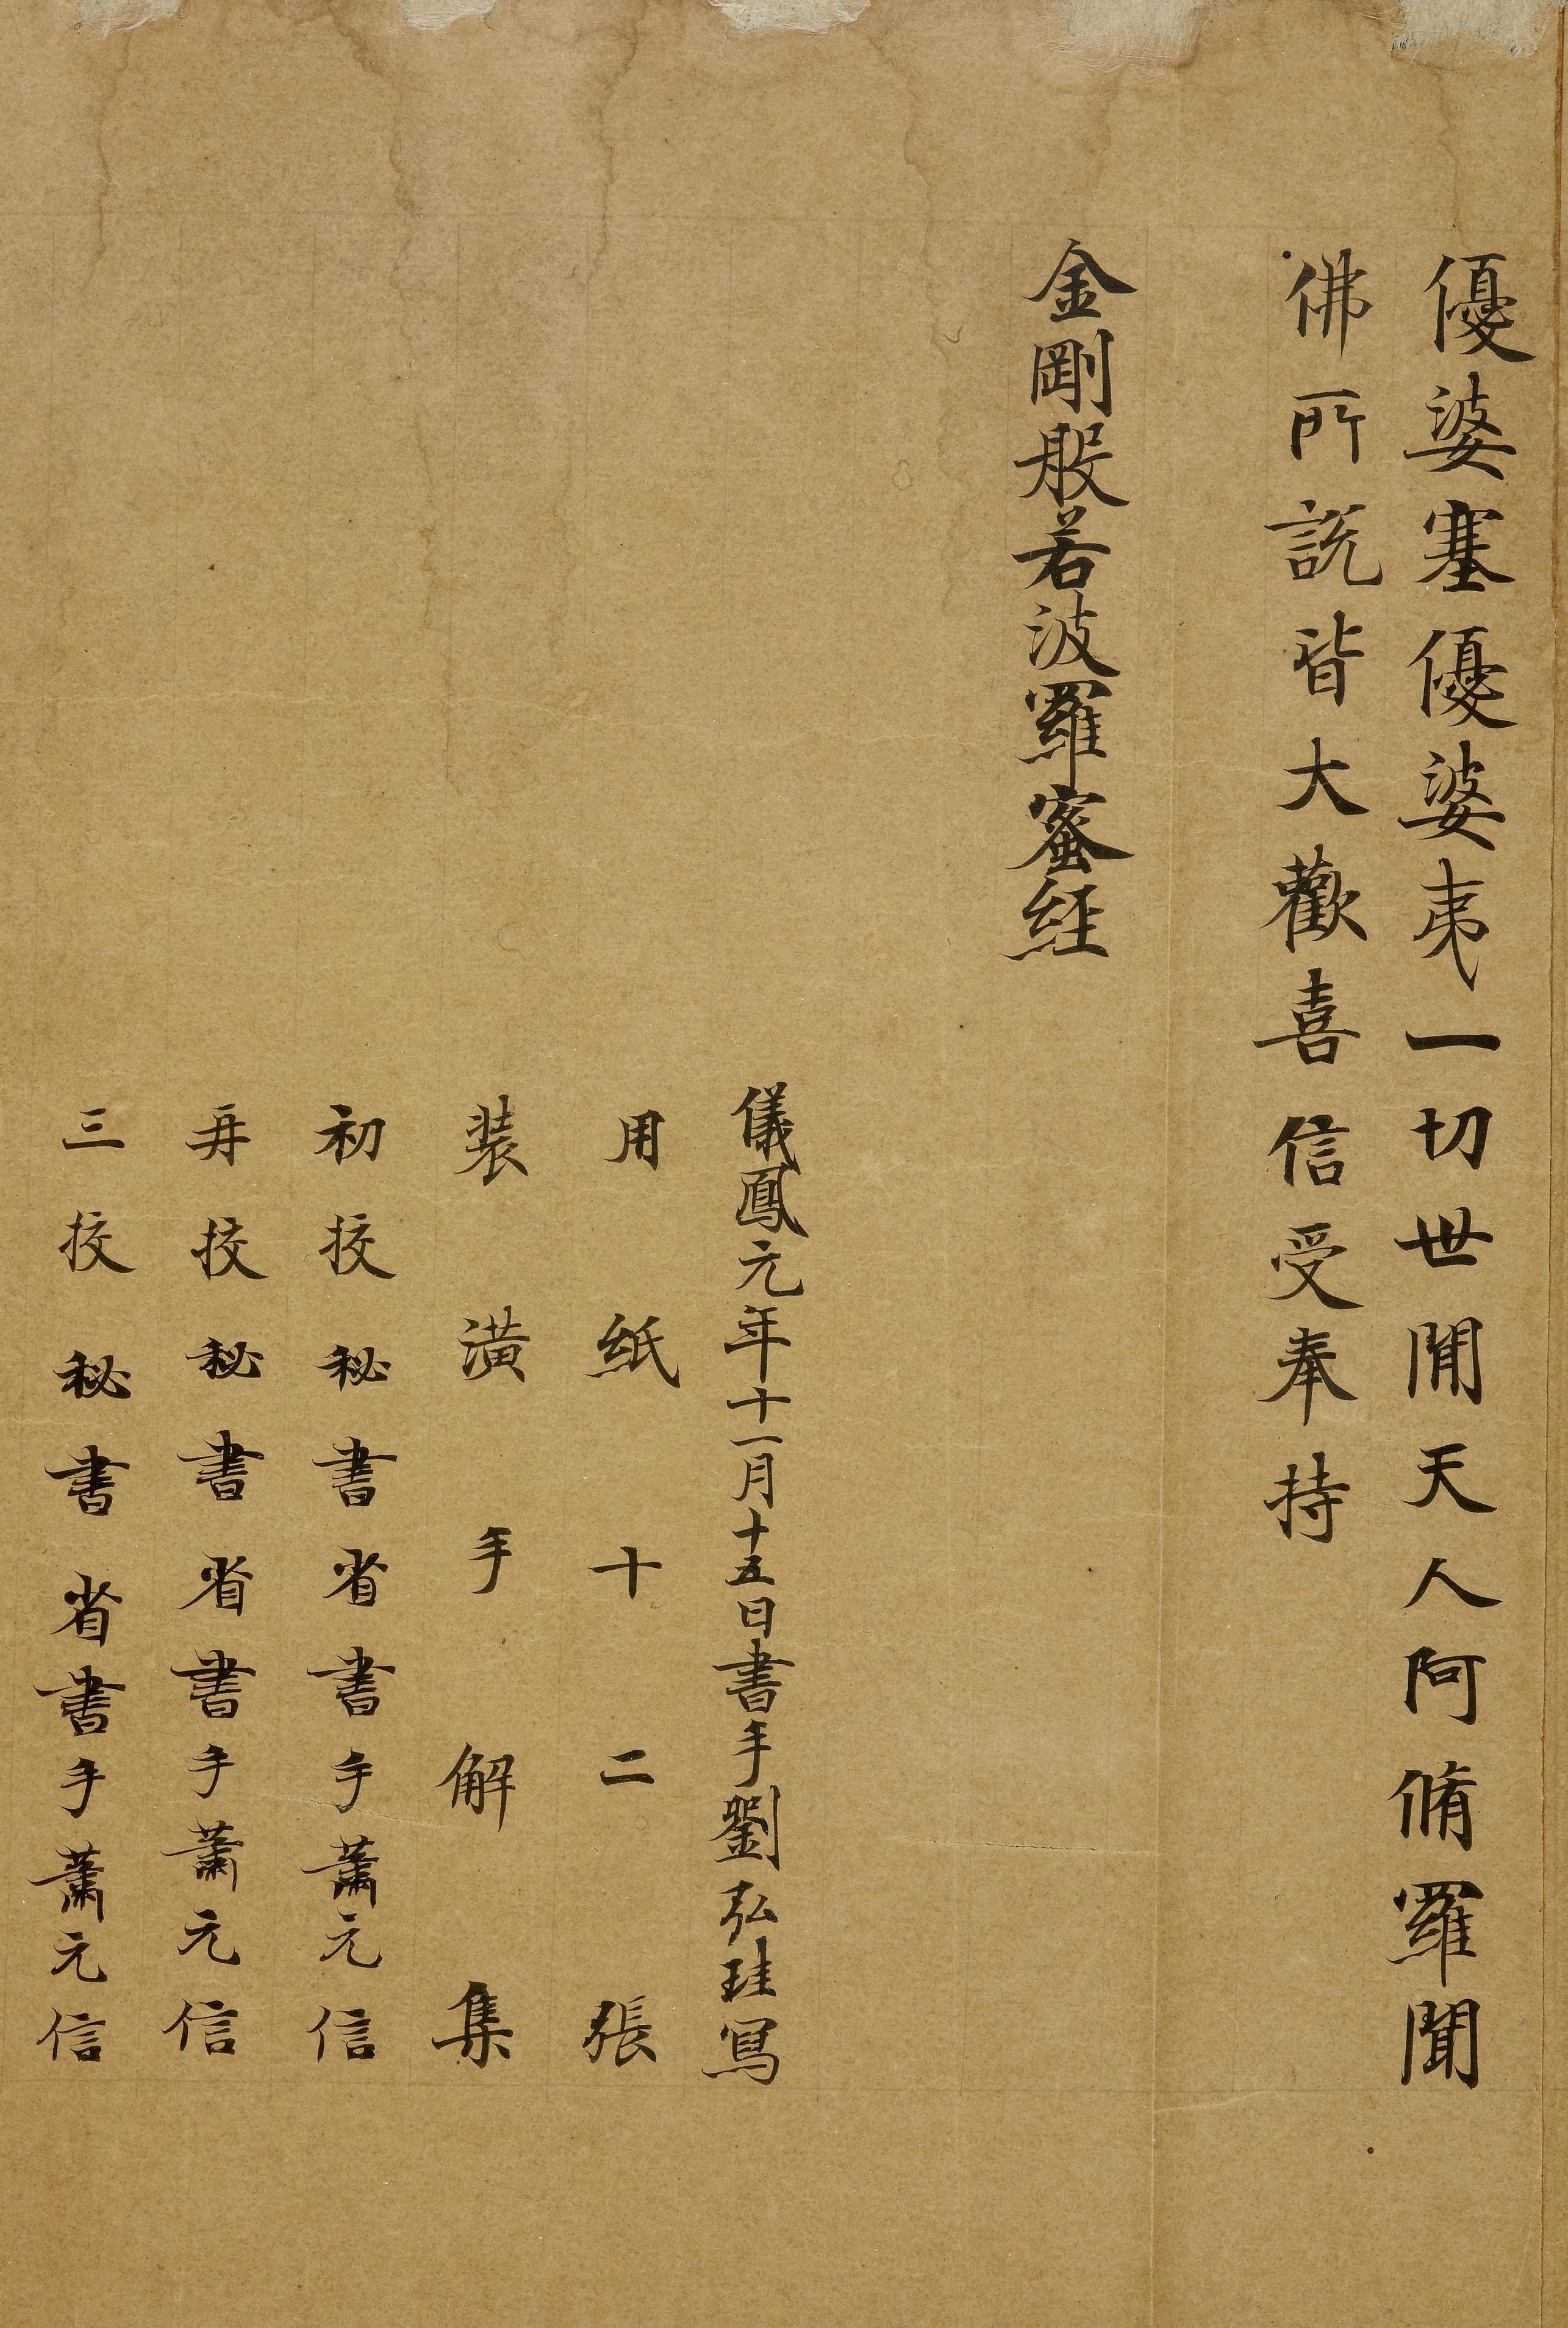 優婆塞優婆夷一切世閒天人阿脩羅聞
佛所說皆大歡喜信受奉持
金剛般若波羅蜜經
儀鳳元年十一月十五日書手劉弘珪寫
用紙十二張
装潢手解集
初挍秘書省書手蕭元信
再挍秘書省書手蕭元信
三挍秘書省書手蕭元信